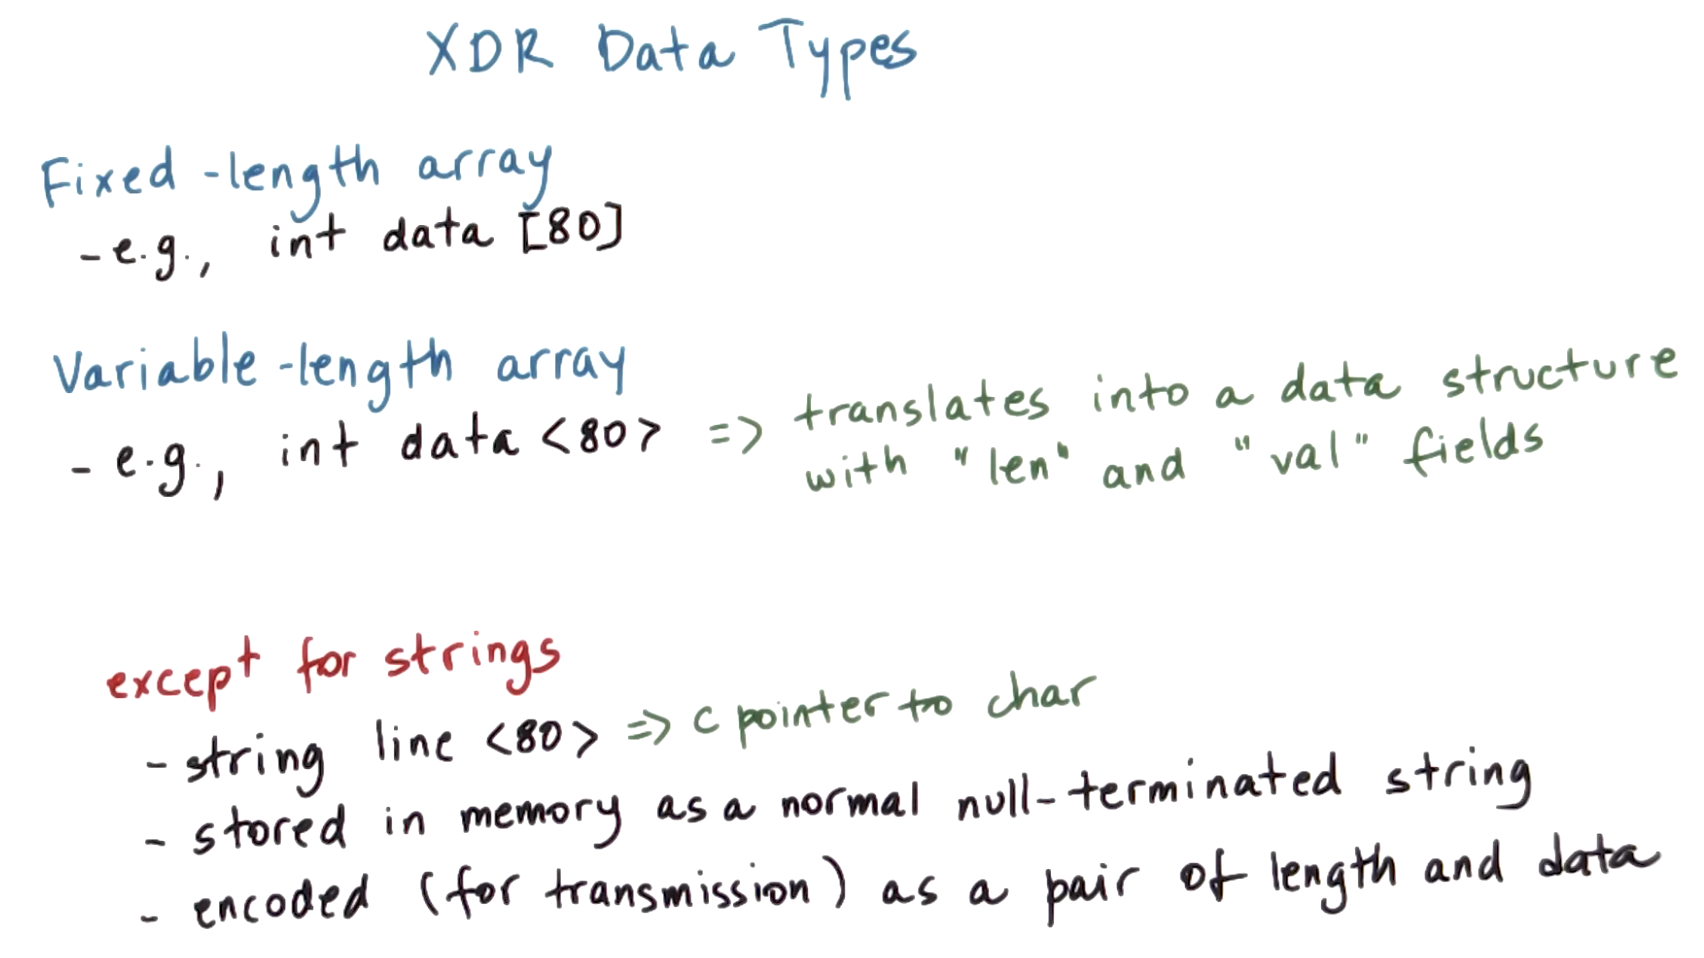 XDR Data Types
Fixed-length array
- e.g., int data [80]
Variable-length array
- e.g., int data <80> => translates into a data structure
with "len" and "val" fields
except for strings
- string line <80> => c pointer to char
- stored in memory as a normal null-terminated string
- encoded (for transmission) as a pair of length and data